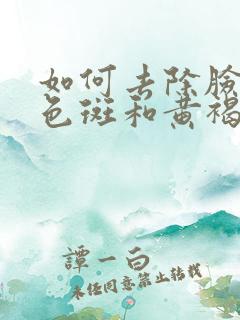 如何去除臉
色斑和黄褐
譚一白
未任同意禁止转载